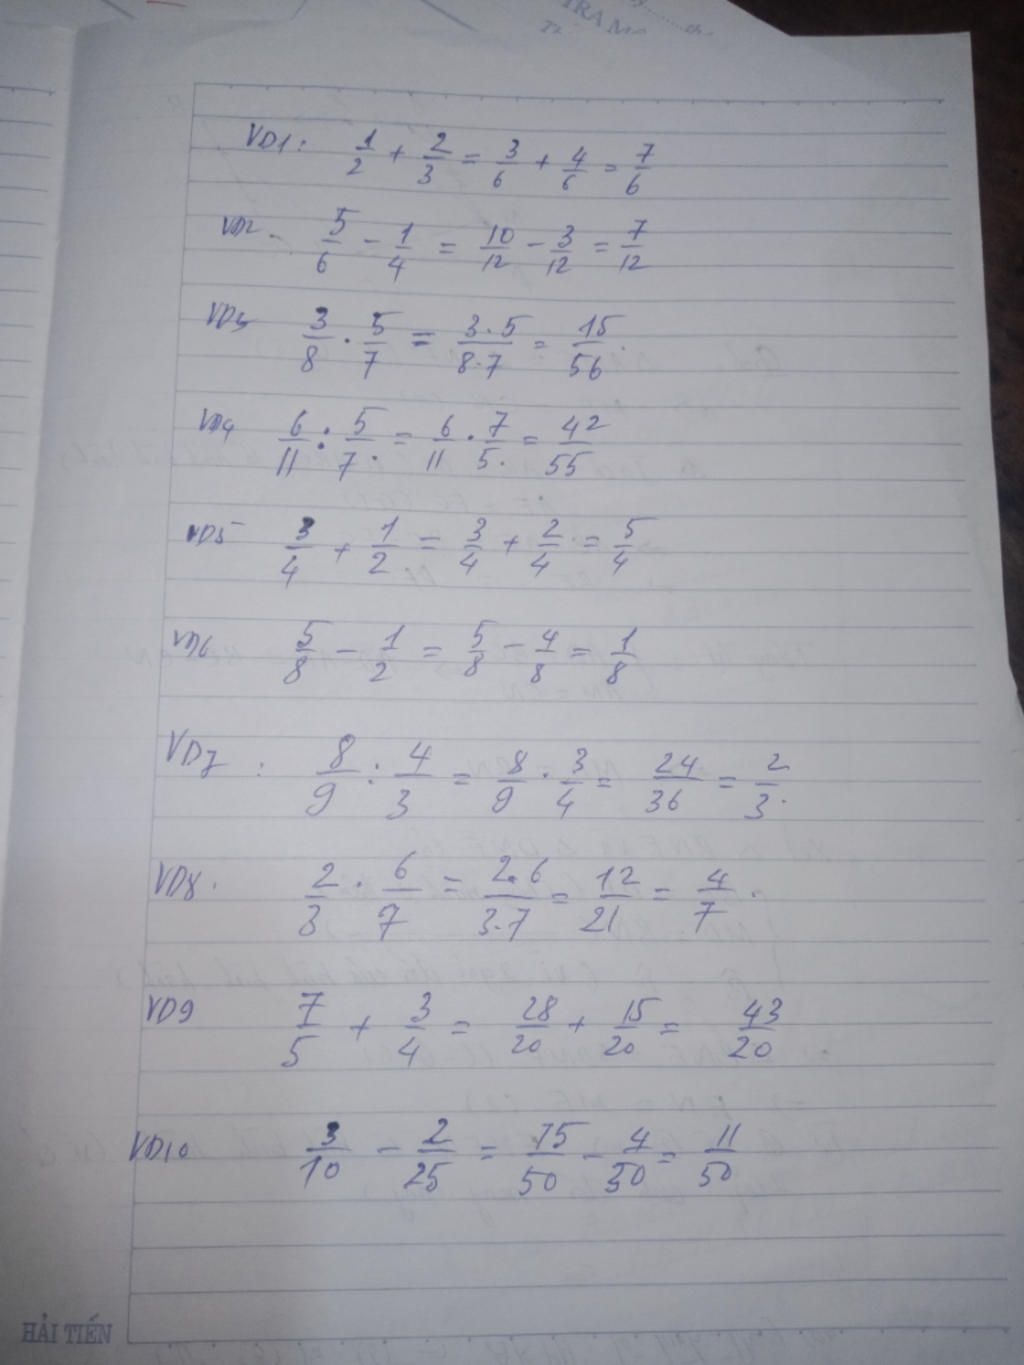 TRA
VD1: 1/2 + 2/3 = 3/6 + 4/6 = 7/6
VD2. 5/6 - 1/4 = 10/12 - 3/12 = 7/12
VD3 3/8 . 5/7 = 3.5/8.7 = 15/56
VD4 6/11 : 5/7 = 6/11 . 7/5 = 42/55
VD5 3/4 + 1/2 = 3/4 + 2/4 = 5/4
VD6 5/8 - 1/2 = 5/8 - 4/8 = 1/8
VD7 : 8/9 : 4/3 = 8/9 . 3/4 = 24/36 = 2/3
VD8. 2/3 . 6/7 = 2.6/3.7 = 12/21 = 4/7
VD9 7/5 + 3/4 = 28/20 + 15/20 = 43/20
VD10 3/10 - 2/25 = 15/50 - 4/50 = 11/50
HẢI TIẾN